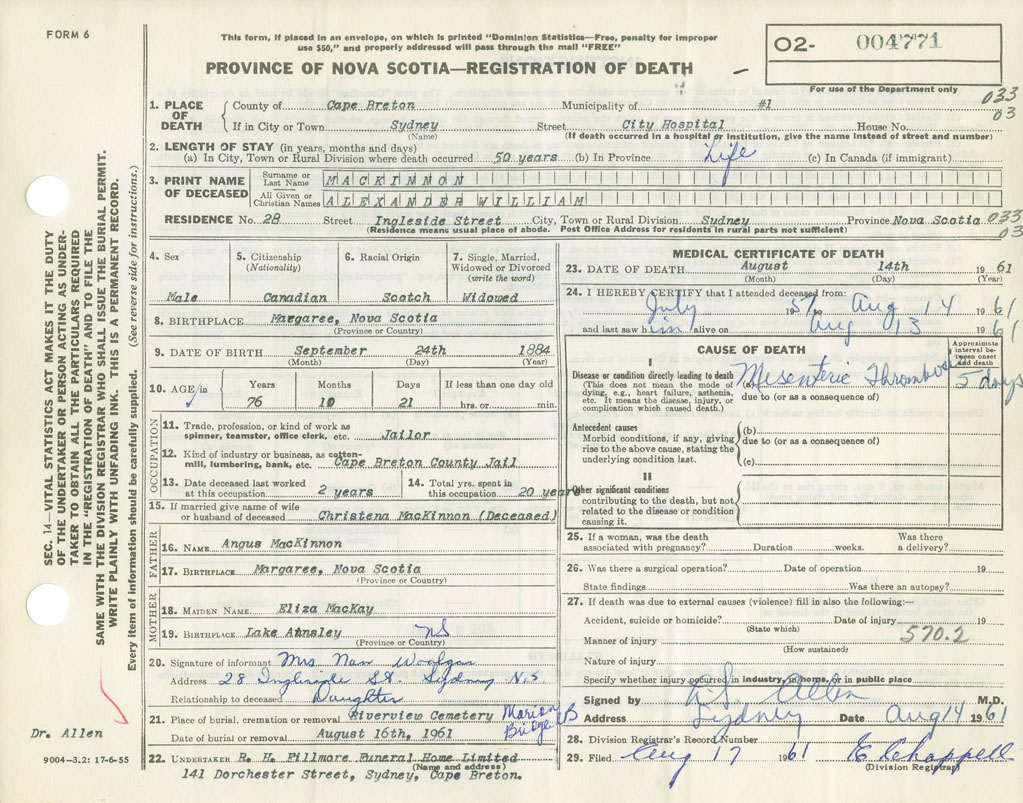 FORM 6
This form, if placed in an envelope, on which is printed "Dominion Statistics—Free, penalty for improper
use $50," and properly addressed will pass through the mail "FREE"
O2- 004771
PROVINCE OF NOVA SCOTIA—REGISTRATION OF DEATH
For use of the Department only
033
03
1. PLACE OF DEATH
County of Cape Breton Municipality of #1
If in City or Town Sydney Street City Hospital House No.
(Name) (If death occurred in a hospital or institution, give the name instead of street and number)
2. LENGTH OF STAY (in years, months and days)
(a) In City, Town or Rural Division where death occurred 50 years (b) In Province Life (c) In Canada (if immigrant)
3. PRINT NAME OF DECEASED
Surname or Last Name MACKINNON
All Given or Christian Names ALEXANDER WILLIAM
RESIDENCE No. 28 Street Ingleside Street City, Town or Rural Division Sydney Province Nova Scotia 033
(Residence means usual place of abode. Post Office Address for residents in rural parts not sufficient) 03
4. Sex
Male
5. Citizenship (Nationality)
Canadian
6. Racial Origin
Scotch
7. Single, Married, Widowed or Divorced (write the word)
Widowed
8. BIRTHPLACE Margaree, Nova Scotia
(Province or Country)
9. DATE OF BIRTH September 24th 1884
(Month) (Day) (Year)
10. AGE/in Years Months Days If less than one day old
76 10 21 hrs. or min.
OCCUPATION
11. Trade, profession, or kind of work as
spinner, teamster, office clerk, etc. Jailor
12. Kind of industry or business, as cotton-
mill, lumbering, bank, etc. Cape Breton County Jail
13. Date deceased last worked
at this occupation 2 years
14. Total yrs. spent in
this occupation 20 years
15. If married give name of wife
or husband of deceased Christena MacKinnon (Deceased)
FATHER
16. NAME Angus MacKinnon
17. BIRTHPLACE Margaree, Nova Scotia
(Province or Country)
MOTHER
18. MAIDEN NAME Eliza MacKay
19. BIRTHPLACE Lake Ainsley NS
(Province or Country)
20. Signature of informant Mrs Nan Woolgar
Address 28 Ingleside St. Sydney N.S
Relationship to deceased Daughter
21. Place of burial, cremation or removal Riverview Cemetery Marion Bridge CB
Date of burial or removal August 16th, 1961
22. UNDERTAKER R. H. Fillmore Funeral Home Limited
(Name and address)
141 Dorchester Street, Sydney, Cape Breton.
MEDICAL CERTIFICATE OF DEATH
23. DATE OF DEATH August 14th 1961
(Month) (Day) (Year)
24. I HEREBY CERTIFY that I attended deceased from:
July 1957 to Aug 14 1961
and last saw him alive on Aug 13 1961
CAUSE OF DEATH
Approximate interval between onset and death
I
Disease or condition directly leading to death
(This does not mean the mode of
dying, e.g., heart failure, asthenia,
etc. It means the disease, injury, or
complication which caused death.)
(a) Mesenteric Thrombosis 5 days
due to (or as a consequence of)
Antecedent causes
Morbid conditions, if any, giving
rise to the above cause, stating the
underlying condition last.
(b)
due to (or as a consequence of)
(c)
II
Other significant conditions
contributing to the death, but not
related to the disease or condition
causing it.
25. If a woman, was the death
associated with pregnancy? Duration weeks. Was there a delivery?
26. Was there a surgical operation? Date of operation 19
State findings Was there an autopsy?
27. If death was due to external causes (violence) fill in also the following:—
Accident, suicide or homicide? Date of injury 19
(State which)
570.2
Manner of injury
(How sustained)
Nature of injury
Specify whether injury occurred in industry, in home, or in public place
Signed by A.S. Allen M.D.
Address Sydney Date Aug 14 1961
28. Division Registrar's Record Number
29. Filed Aug 17 1961 E Chappell
(Division Registrar)
SEC. 14—VITAL STATISTICS ACT MAKES IT THE DUTY
OF THE UNDERTAKER OR PERSON ACTING AS UNDER-
TAKER TO OBTAIN ALL THE PARTICULARS REQUIRED
IN THE "REGISTRATION OF DEATH" AND TO FILE THE
SAME WITH THE DIVISION REGISTRAR WHO SHALL ISSUE THE BURIAL PERMIT.
WRITE PLAINLY WITH UNFADING INK. THIS IS A PERMANENT RECORD.
Every item of information should be carefully supplied. (See reverse side for instructions.)
Dr. Allen
9004—3.2: 17-6-55